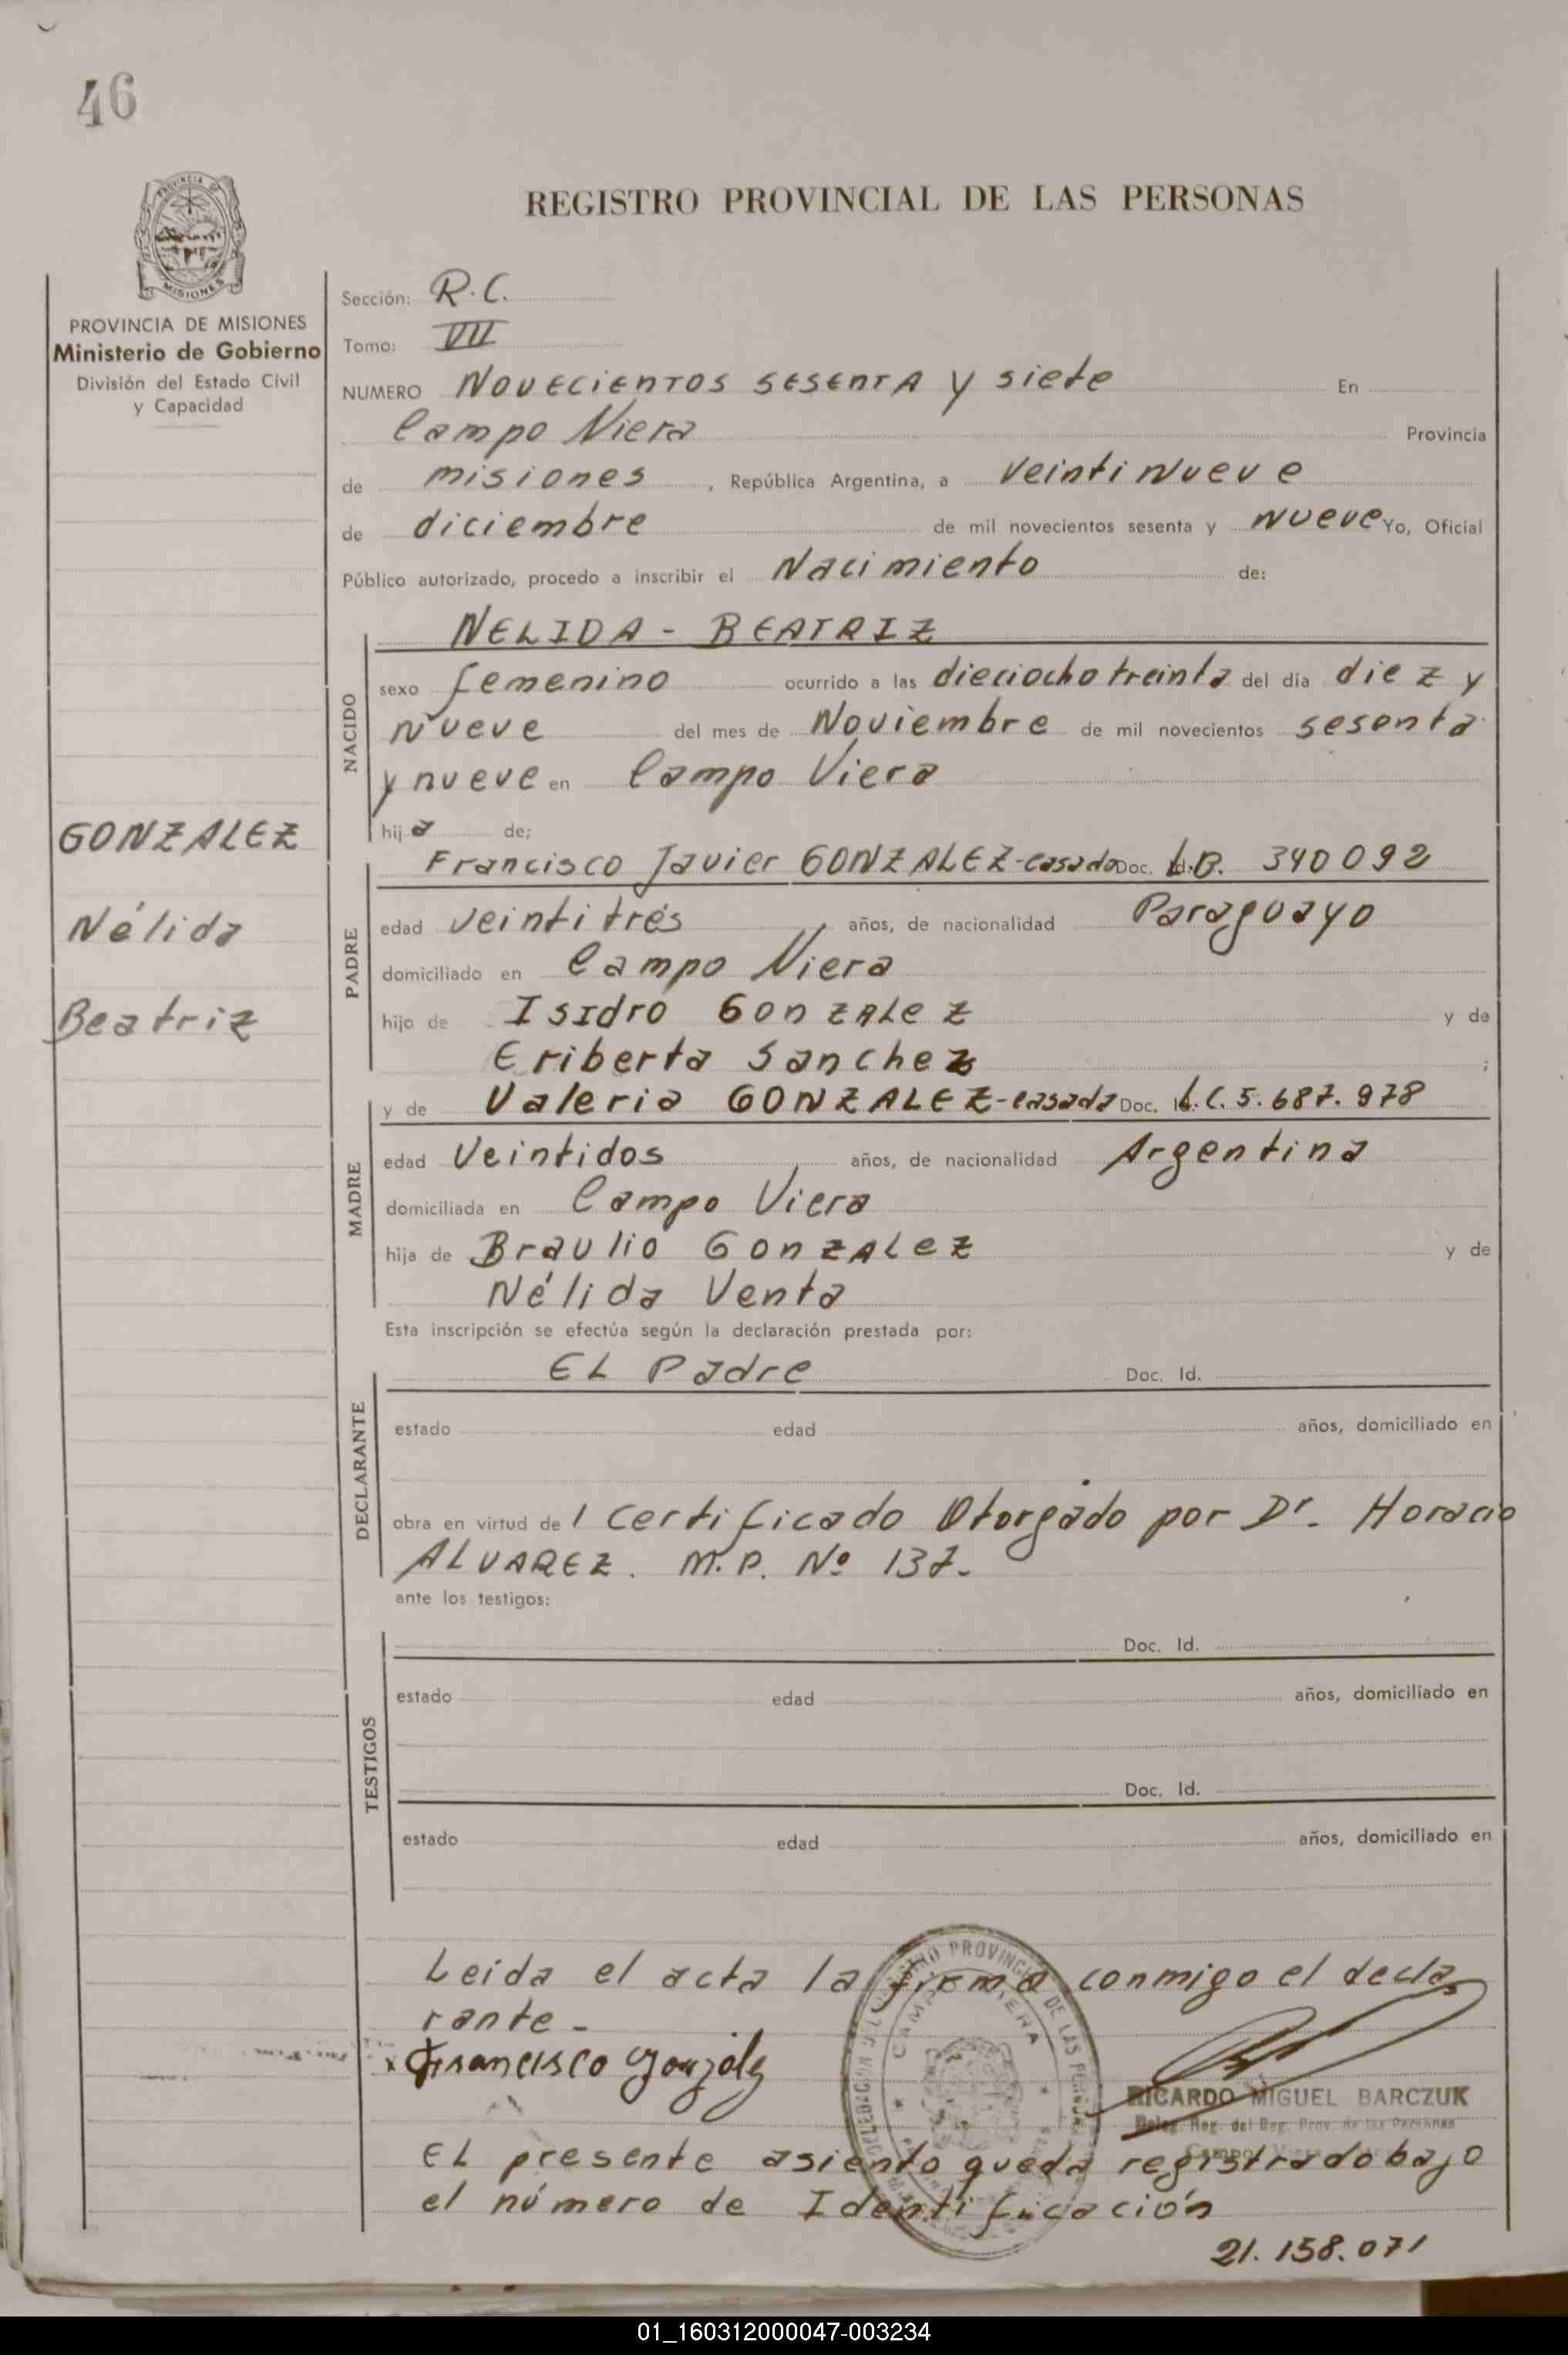 46
PROVINCIA DE MISIONES
Ministerio de Gobierno
División del Estado Civil
y Capacidad
REGISTRO PROVINCIAL DE LAS PERSONAS
Sección: R.C.
Tomo: VII
NUMERO Novecientos sesenta y siete En
Campo Viera Provincia
de misiones, República Argentina, a veintinueve
de diciembre de mil novecientos sesenta y nueve Yo, Oficial
Público autorizado, procedo a inscribir el Nacimiento de:
NELIDA - BEATRIZ
NACIDO
sexo femenino ocurrido a las dieciocho treinta del día diez y
nueve del mes de Noviembre de mil novecientos sesenta
y nueve en Campo Viera
hija de;
GONZALEZ
Nélida
Beatriz
Francisco Javier GONZALEZ-casado Doc. Id. B. 340092
PADRE
edad veintitrés años, de nacionalidad Paraguayo
domiciliado en Campo Viera
hijo de Isidro Gonzalez y de
Eriberta Sanchez ;
y de Valeria GONZALEZ-casada Doc. L.C. 5.687.978
MADRE
edad Veintidos años, de nacionalidad Argentina
domiciliada en Campo Viera
hija de Braulio Gonzalez y de
Nélida Venta
Esta inscripción se efectúa según la declaración prestada por:
EL Padre Doc. Id.
DECLARANTE
estado edad años, domiciliado en
obra en virtud de l certificado Otorgado por Dr. Horacio
ALVAREZ. M.P. Nº 137.
ante los testigos:
Doc. Id.
TESTIGOS
estado edad años, domiciliado en
Doc. Id.
estado edad años, domiciliado en
Leida el acta la firma conmigo el decla
rante-
x Francisco Gonzalez
RICARDO MIGUEL BARCZUK
Deleg. Reg. del Reg. Prov. de las Personas
Campo Viera
EL presente asiento queda registrado bajo
el número de Identificación
21.158.071
01_160312000047-003234